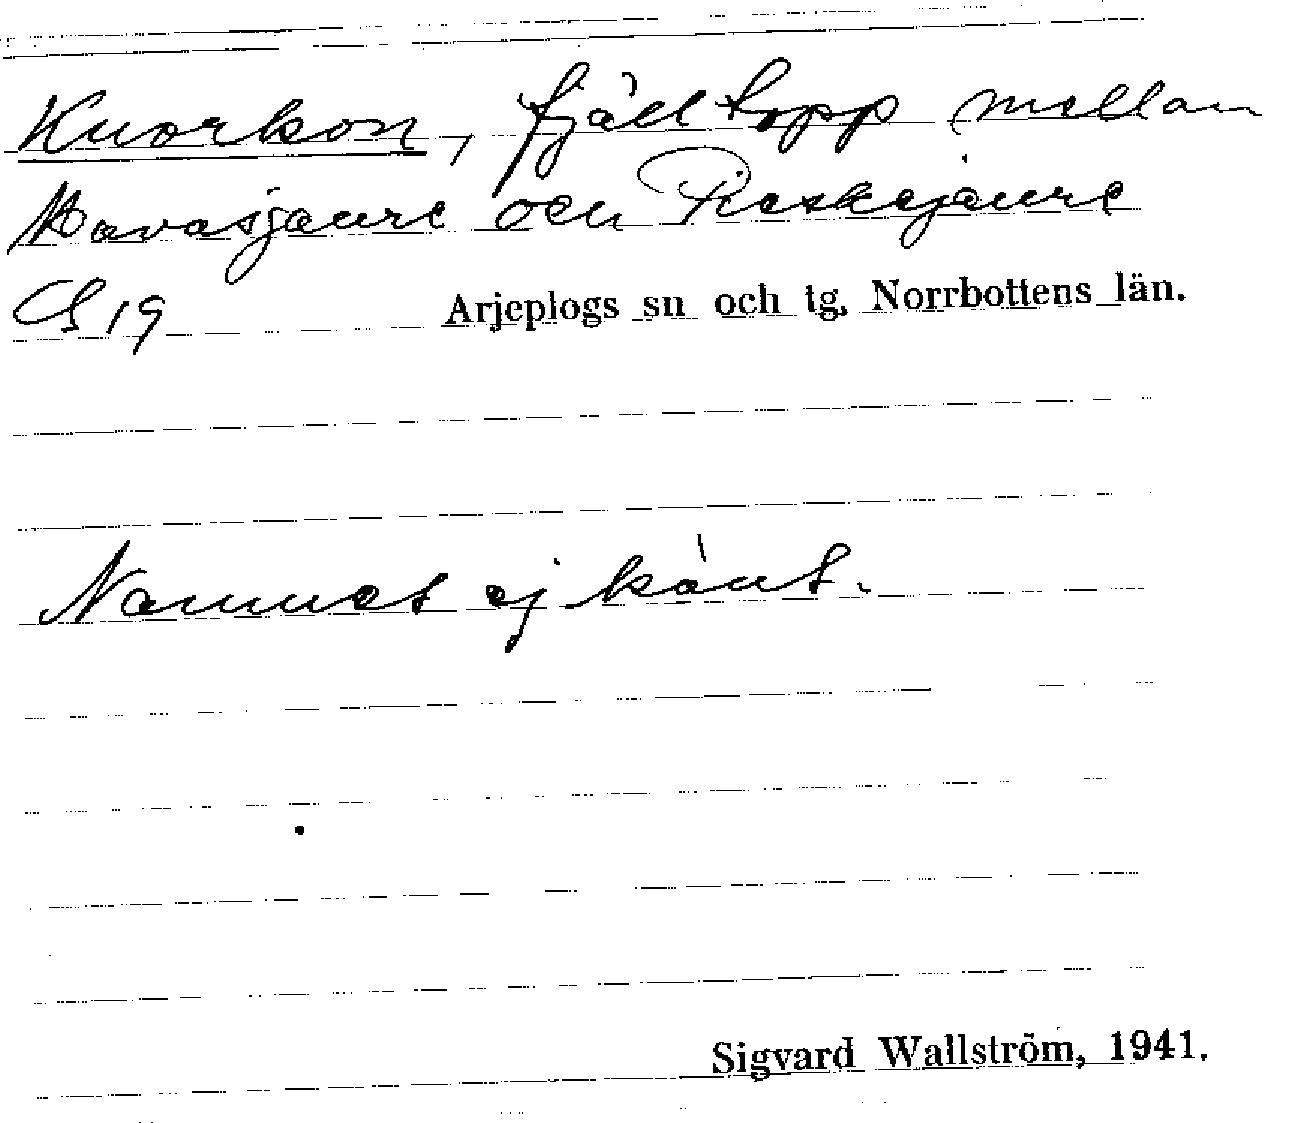 Kuorkon, fjälltopp mellan
Mavasjaure och Pieskejaure
G 19 Arjeplogs sn och tg, Norrbottens län.
Namnet ej känt.
Sigvard Wallström, 1941.